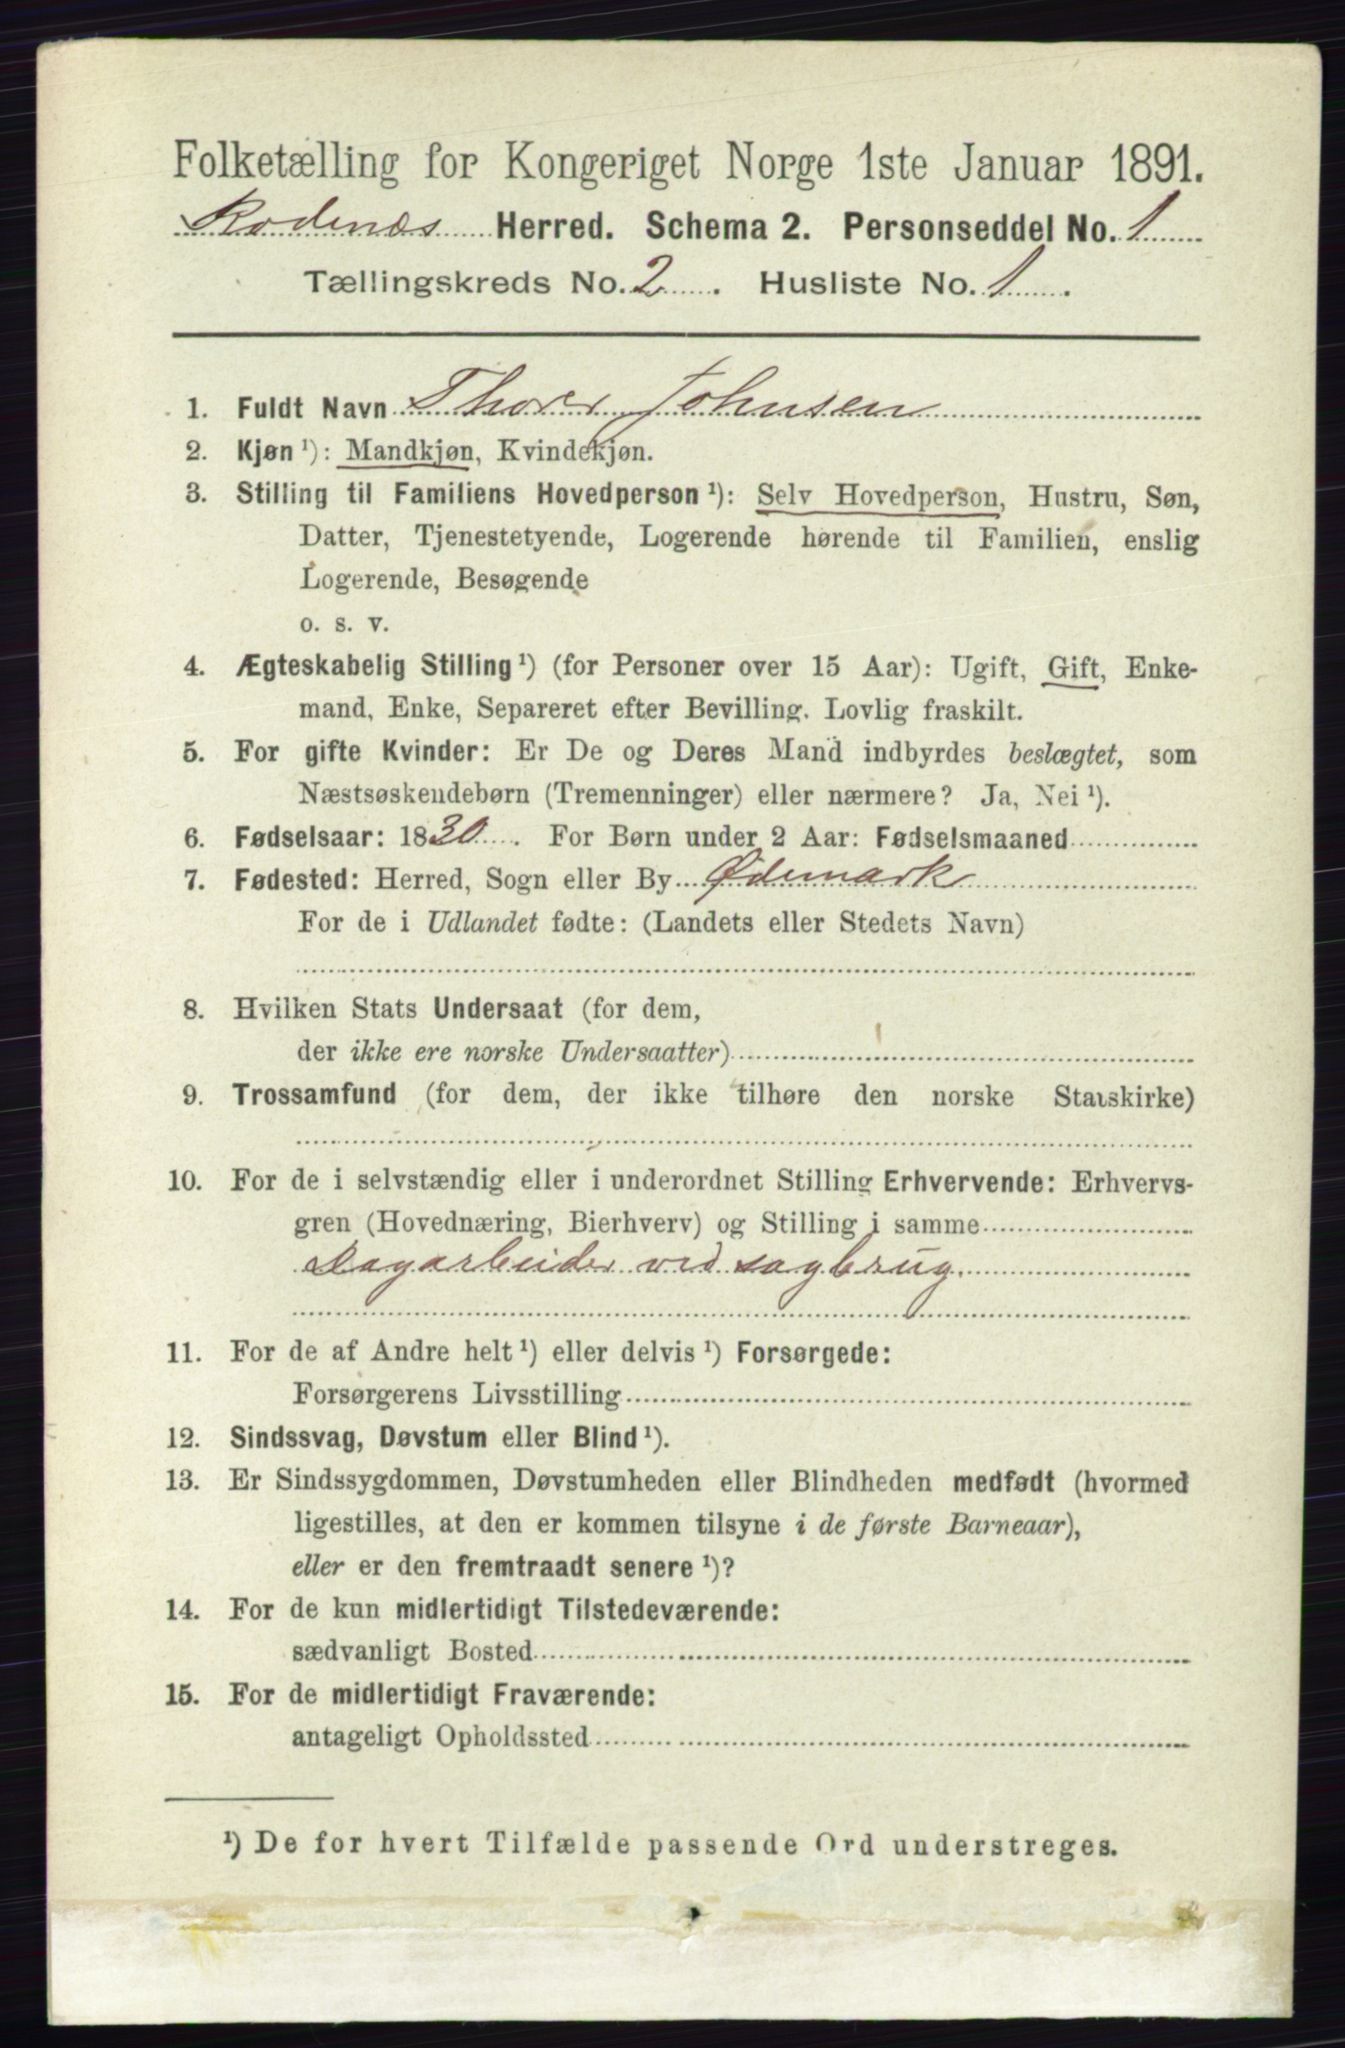 Folketælling for Kongeriget Norge 1ste Januar 1891.
Rødenæs Herred. Schema 2. Personseddel No. 1
Tællingskreds No. 2. Husliste No. 1.
1. Fuldt Navn Thorer Johnsen
2. Kjøn ¹): Mandkjøn, Kvindekjøn.
3. Stilling til Familiens Hovedperson ¹): Selv Hovedperson, Hustru, Søn,
Datter, Tjenestetyende, Logerende hørende til Familien, enslig
Logerende, Besøgende
o. s. v.
4. Ægteskabelig Stilling ¹) (for Personer over 15 Aar): Ugift, Gift, Enke-
mand, Enke, Separeret efter Bevilling. Lovlig fraskilt.
5. For gifte Kvinder: Er De og Deres Mand indbyrdes beslægtet, som
Næstsøskendebørn (Tremenninger) eller nærmere? Ja, Nei ¹).
6. Fødselsaar: 1830. For Børn under 2 Aar: Fødselsmaaned
7. Fødested: Herred, Sogn eller By Ødemark
For de i Udlandet fødte: (Landets eller Stedets Navn)
8. Hvilken Stats Undersaat (for dem,
der ikke ere norske Undersaatter)
9. Trossamfund (for dem, der ikke tilhøre den norske Statskirke)
10. For de i selvstændig eller i underordnet Stilling Erhvervende: Erhvervs-
gren (Hovednæring, Bierhverv) og Stilling i samme
Dagarbeider ved sagbrug.
11. For de af Andre helt ¹) eller delvis ¹) Forsørgede:
Forsørgerens Livsstilling
12. Sindssvag, Døvstum eller Blind ¹).
13. Er Sindssygdommen, Døvstumheden eller Blindheden medfødt (hvormed
ligestilles, at den er kommen tilsyne i de første Barneaar),
eller er den fremtraadt senere ¹)?
14. For de kun midlertidigt Tilstedeværende:
sædvanligt Bosted
15. For de midlertidigt Fraværende:
antageligt Opholdssted
¹) De for hvert Tilfælde passende Ord understreges.